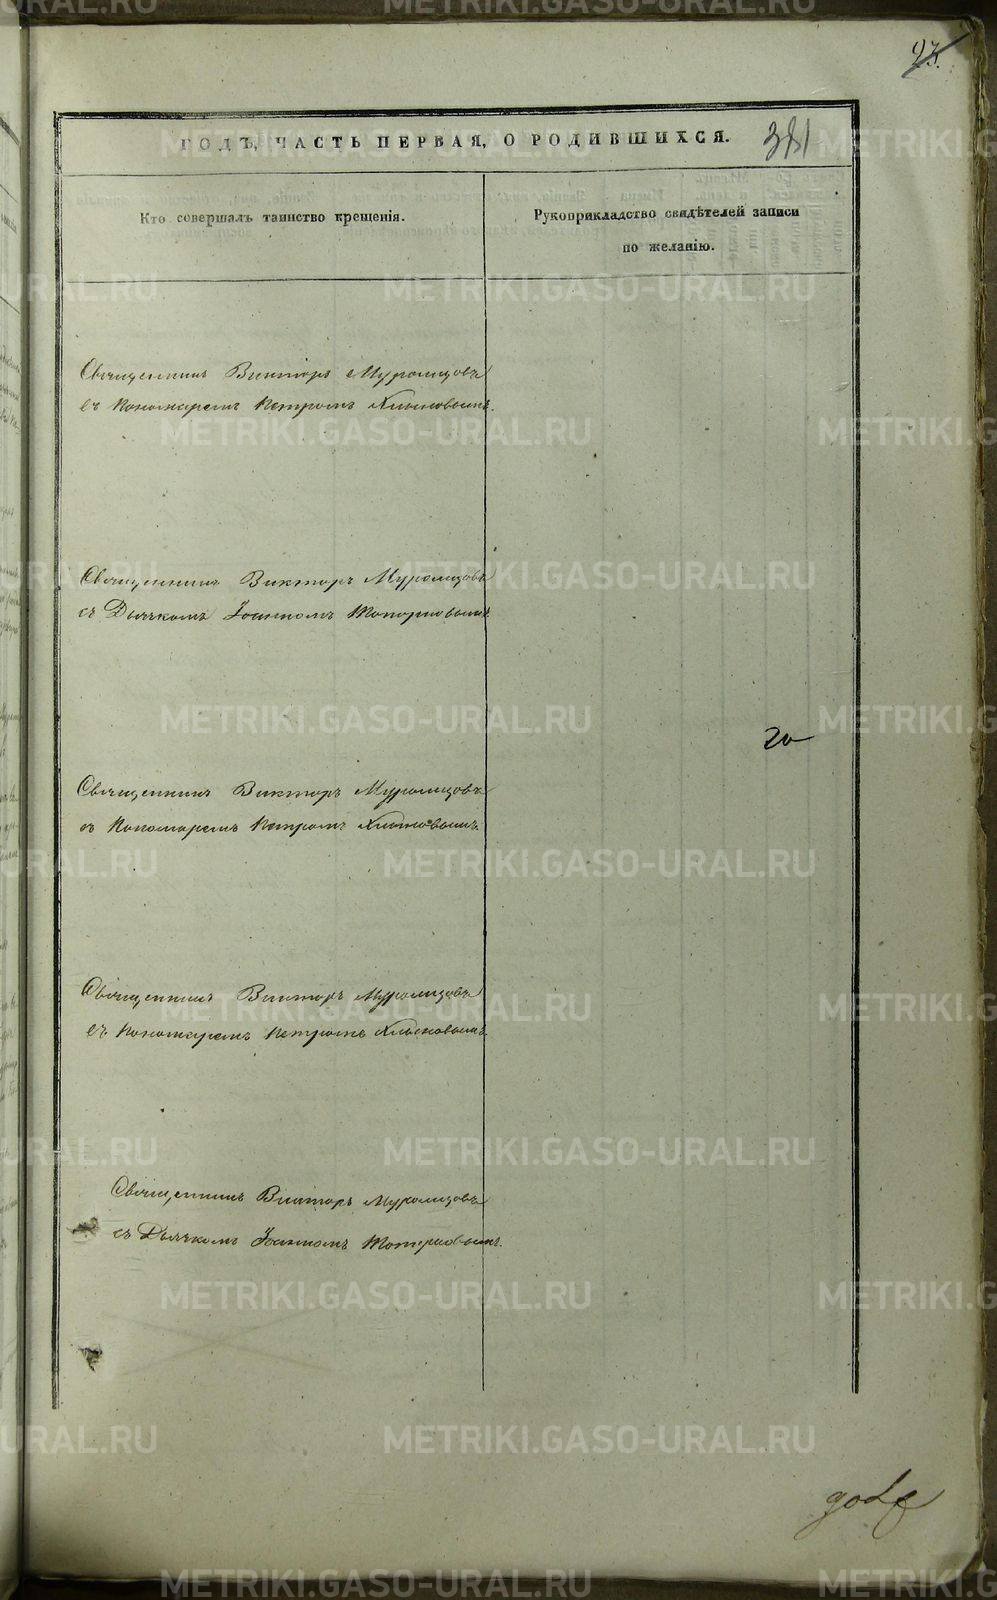 23.
ГОДЪ, ЧАСТЬ ПЕРВАЯ, О РОДИВШИХСЯ.
381
Кто совершалъ таинство крещенія.
Рукоприкладство свидѣтелей записи
по желанію.
Священникъ Викторъ Муромцовъ
съ Пономаремъ Петромъ Хлыновымъ.
Священникъ Викторъ Муромцовъ
съ Дьячкомъ Іоанномъ Топорковымъ.
го
Священникъ Викторъ Муромцовъ
съ Пономаремъ Петромъ Хлыновымъ
Священникъ Викторъ Муромцовъ
съ Пономаремъ Петромъ Хлыновымъ.
Священникъ Викторъ Муромцовъ
съ Дьячкомъ Іоанномъ Топорковымъ.
METRIKI.GASO-URAL.RU